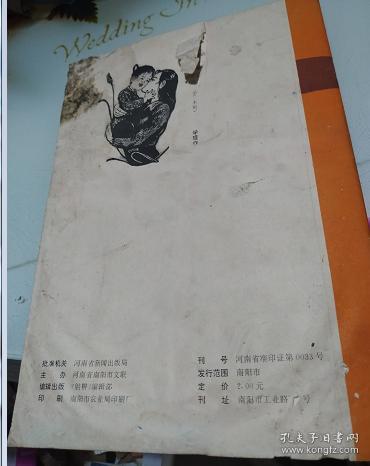 Wedding In
徐恒作
批准机关 河南省新闻出版局
主 办 河南省南阳市文联
编辑出版 《躬耕》编辑部
印 刷 南阳市农业局印刷厂
刊 号 河南省准印证第0033号
发行范围 南阳市
定 价 2.00元
刊 址 南阳市工业路 号
孔夫子旧书网